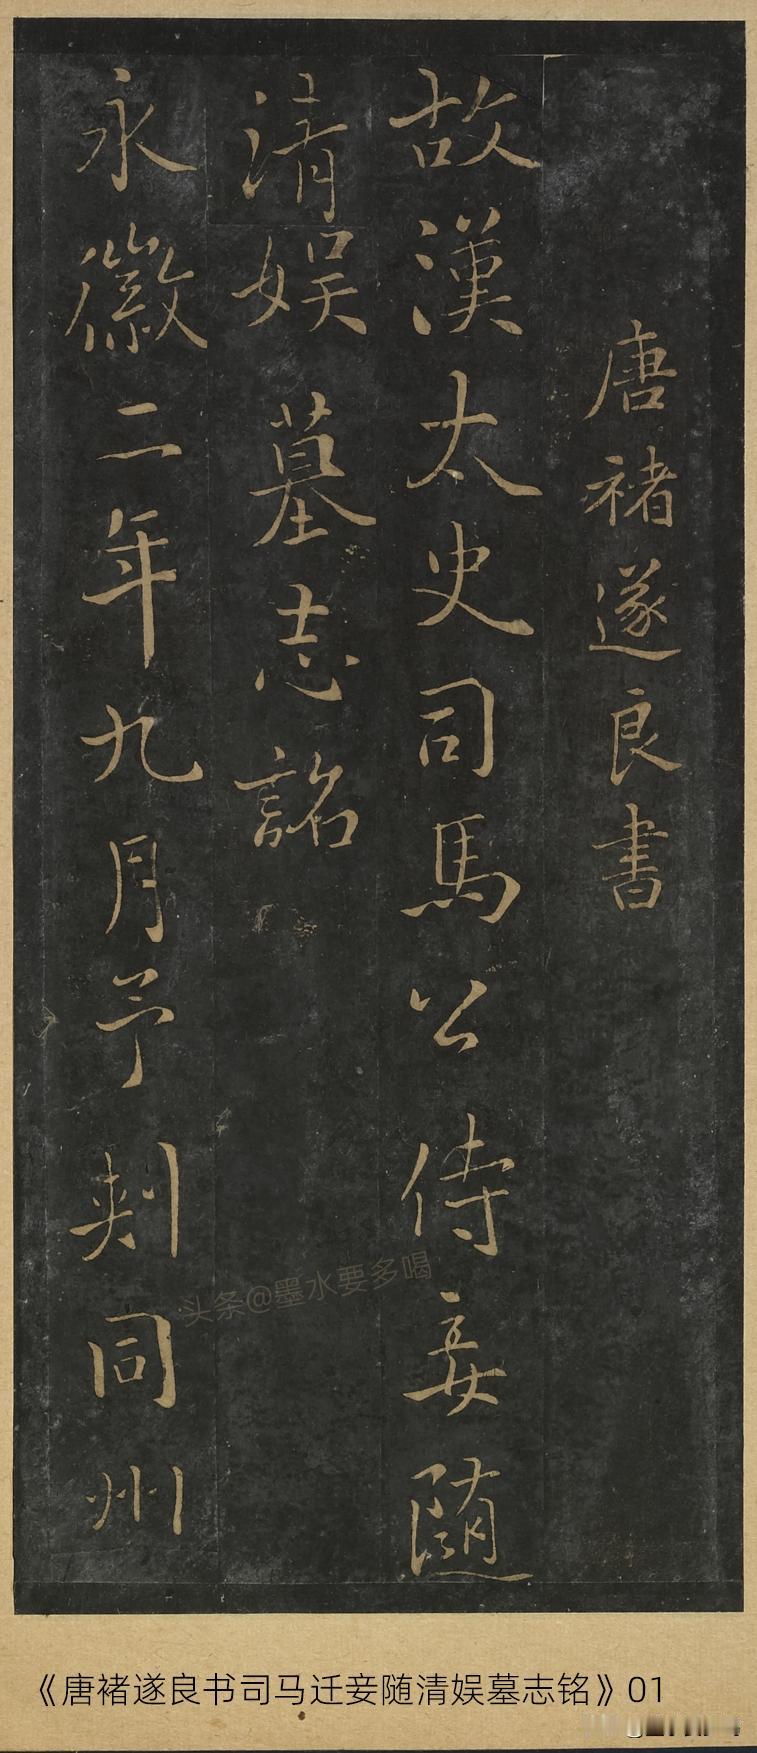 唐褚遂良書
故漢太史司馬公侍妾隨
清娱墓志銘
永徽二年九月予刺同州
头条@墨水要多喝
《唐褚遂良书司马迁妾随清娱墓志铭》01